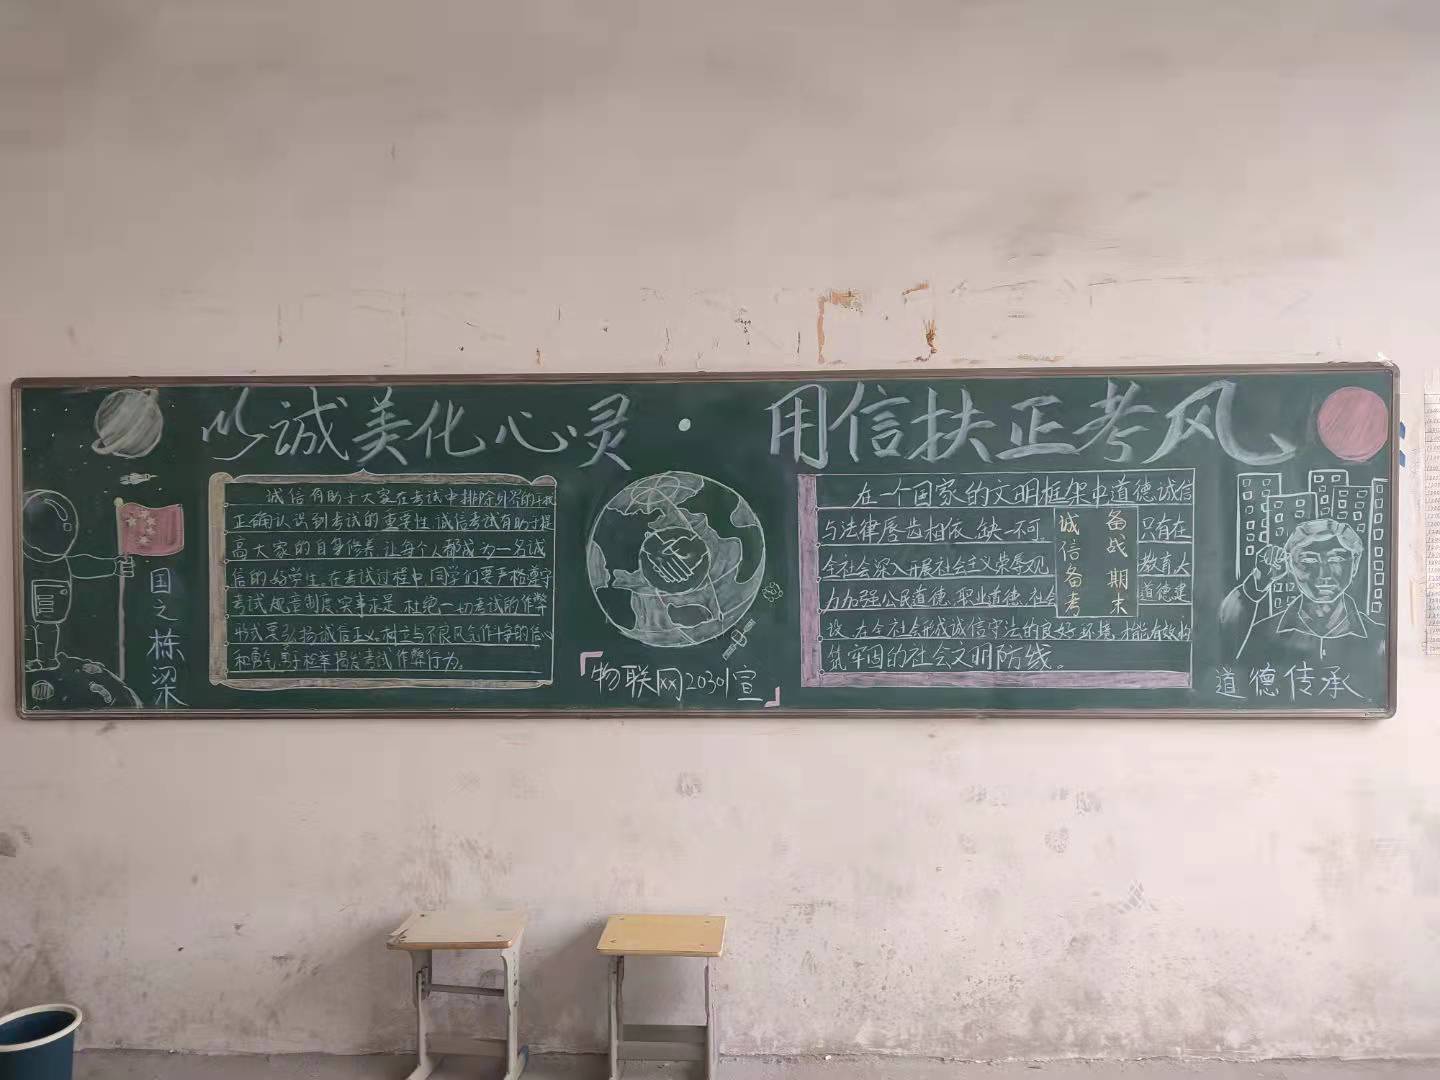 以诚美化心灵·用信扶正考风
国之栋梁
诚信有助于大家在考试中排除外界的干扰
正确认识到考试的重要性 诚信考试有助于提
高大家的自身修养 让每个人都成为一名诚
信的好学生 在考试过程中 同学们要严格遵守
考试规章制度 实事求是 杜绝一切考试的作弊
形式 要弘扬诚信正义 树立与不良风气作斗争的信心
和勇气 勇于检举揭发考试作弊行为。
「物联网20301宣」
在一个国家的文明框架中道德诚信
与法律唇齿相依、缺一不可 只有在
全社会深入开展社会主义荣辱观 教育大
力加强公民道德、职业道德、社会 道德建
设、在全社会形成诚信守法的良好环境、才能有效构
筑牢固的社会文明防线。
备战期末
诚信备考
道德传承